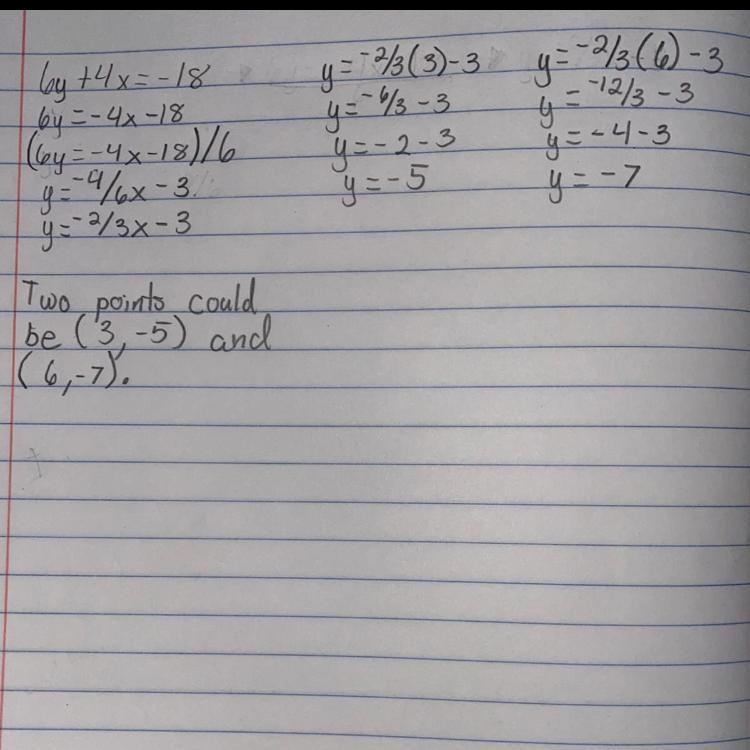 6y+4x=-18
6y=-4x-18
(6y=-4x-18)/6
y=-4/6x-3
y=-2/3x-3
y=-2/3(3)-3
y=-6/3-3
y=-2-3
y=-5
y=-2/3(6)-3
y=-12/3-3
y=-4-3
y=-7
Two points could
be (3,-5) and
(6,-7).